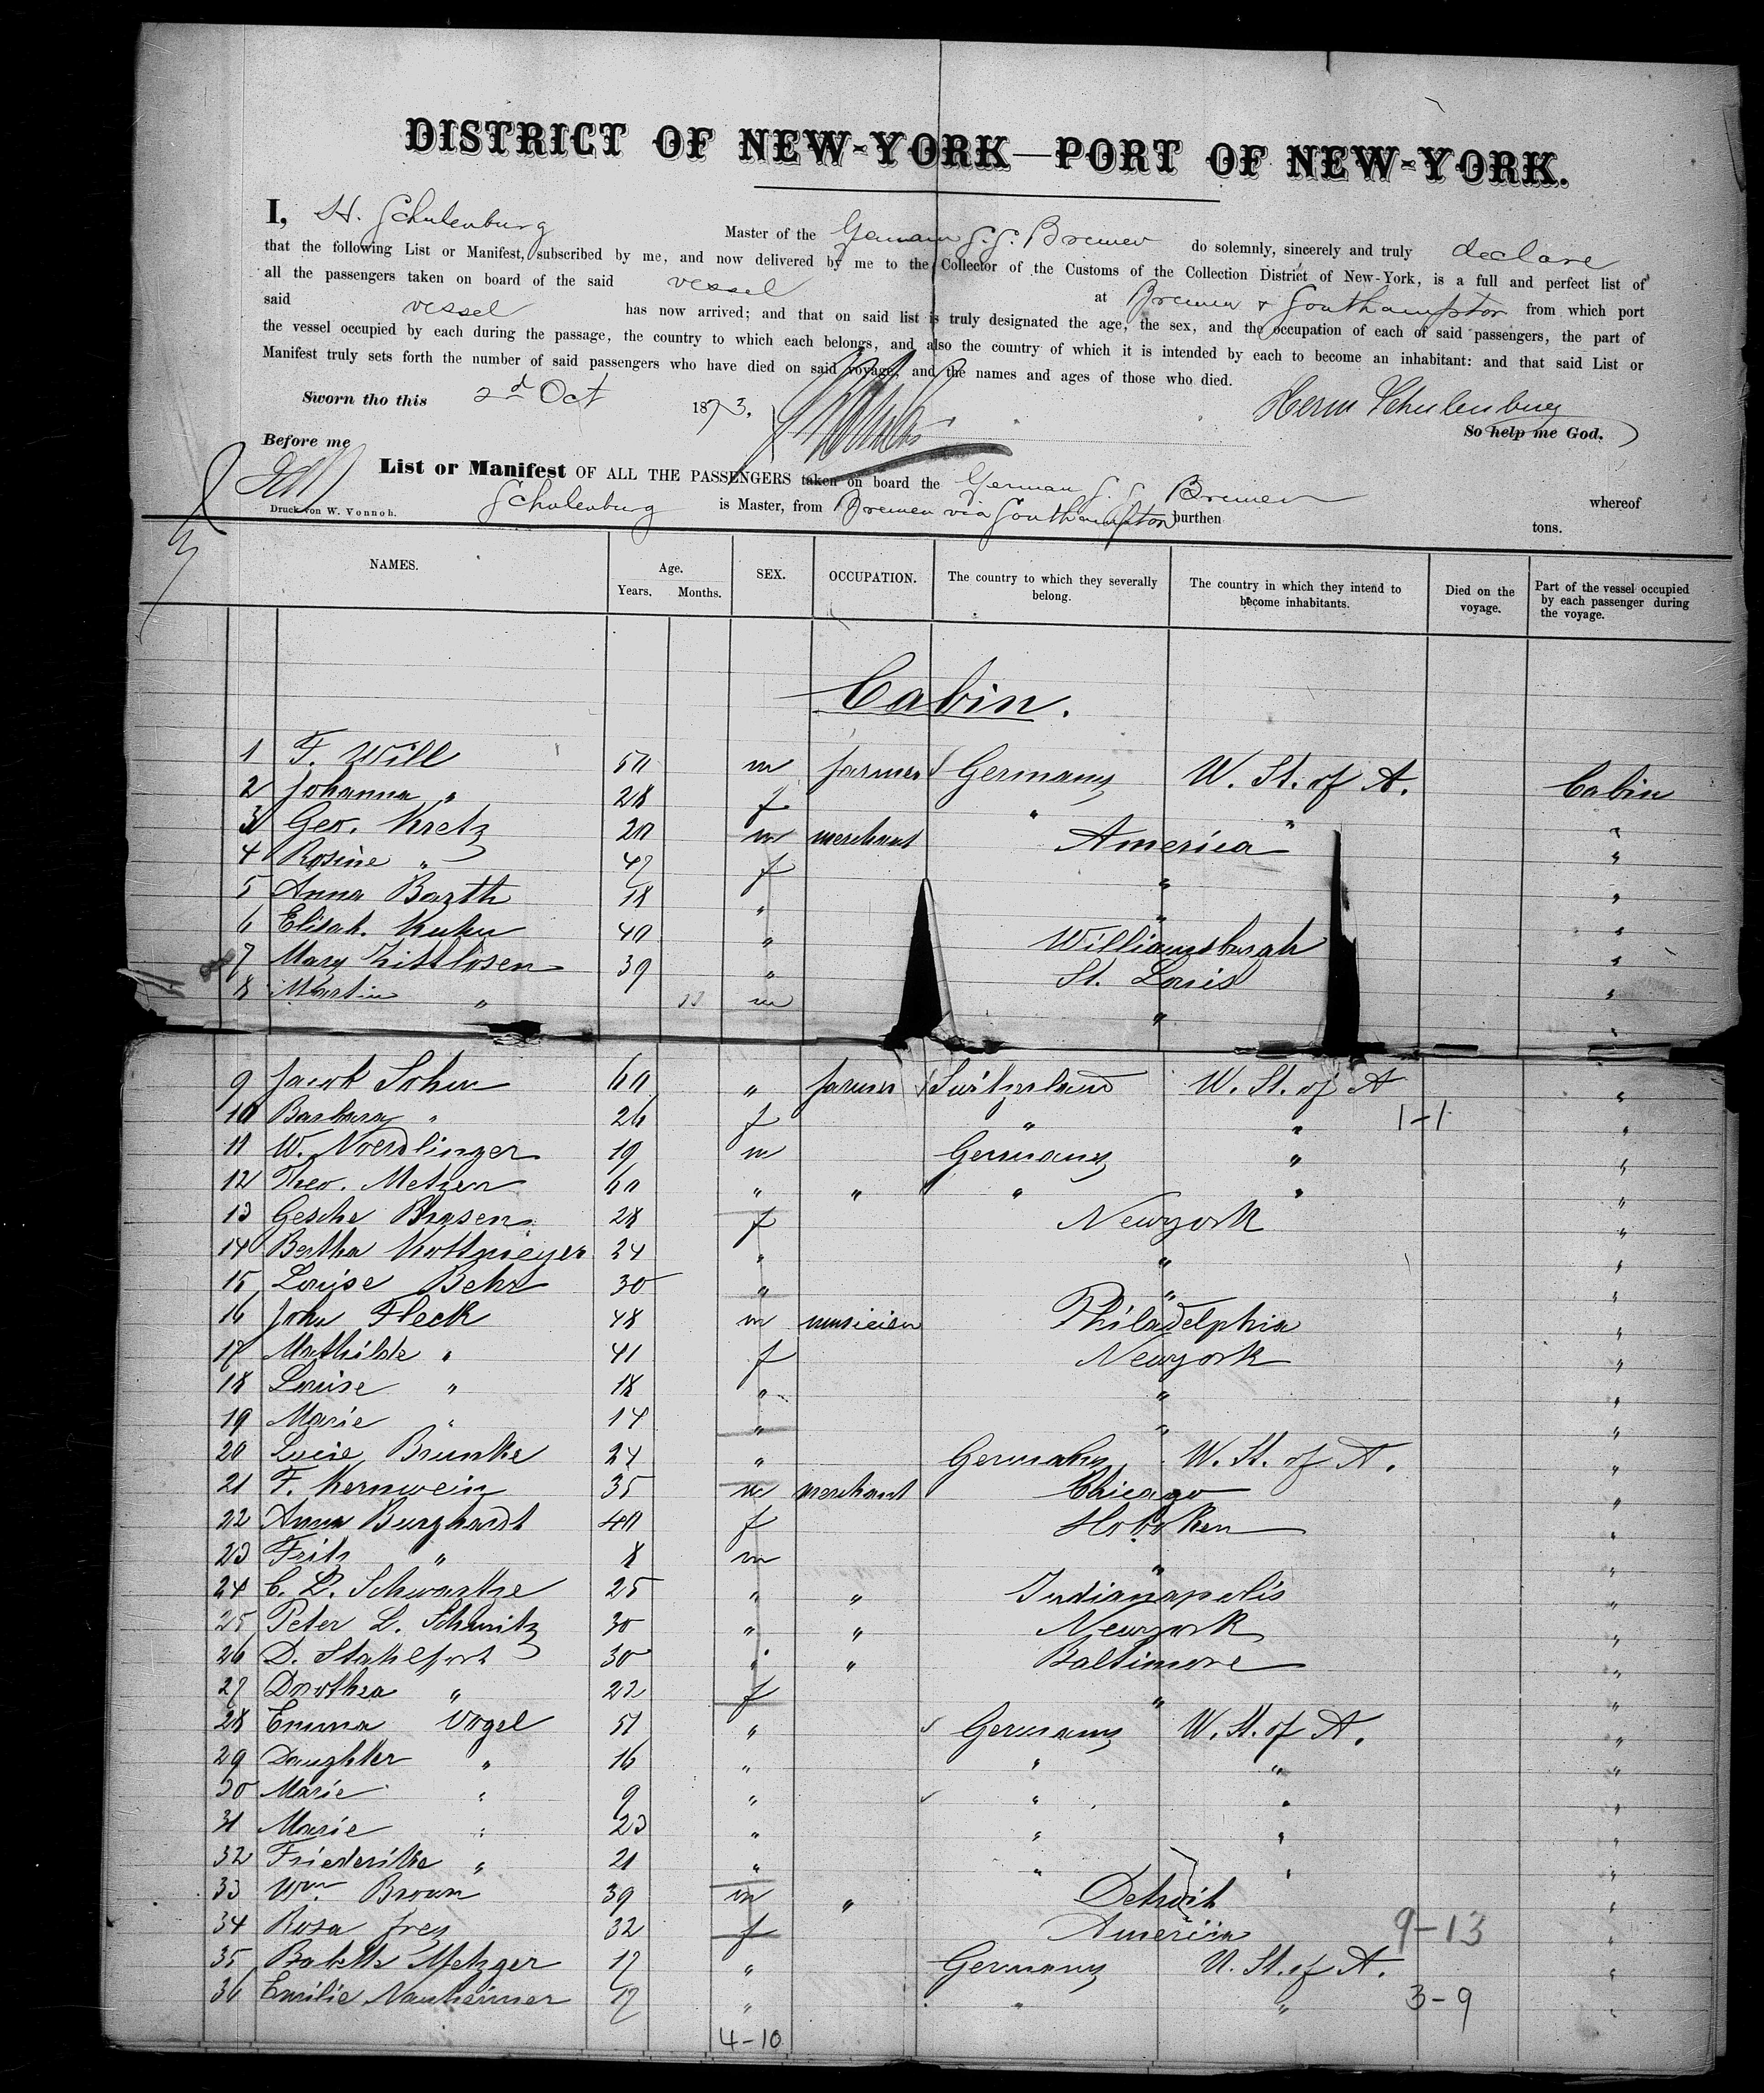 DISTRICT OF NEW-YORK—PORT OF NEW-YORK.
I, H. Schulenburg Master of the German S.S. Bremen do solemnly, sincerely and truly declare
that the following List or Manifest, subscribed by me, and now delivered by me to the Collector of the Customs of the Collection District of New-York, is a full and perfect list of
all the passengers taken on board of the said vessel at Bremen & Southampton from which port
said vessel has now arrived; and that on said list is truly designated the age, the sex, and the occupation of each of said passengers, the part of
the vessel occupied by each during the passage, the country to which each belongs, and also the country of which it is intended by each to become an inhabitant: and that said List or
Manifest truly sets forth the number of said passengers who have died on said voyage, and the names and ages of those who died.
Sworn tho this 2d Oct 1873. Herm Schulenburg
Before me So help me God.
List or Manifest OF ALL THE PASSENGERS taken on board the German S. S. Bremen whereof
Druck von W. Vonnoh. Schulenburg is Master, from Bremen via Southampton burthen tons.
NAMES. Age. Years. Months. SEX. OCCUPATION. The country to which they severally belong. The country in which they intend to become inhabitants. Died on the voyage. Part of the vessel occupied by each passenger during the voyage.
Cabin.
1 F. Will 50 m farmer Germany U. St. of A. Cabin
2 Johanna " 28 f " " "
3 Geo. Kretz 20 m merchant America "
4 Rosine " 47 f " "
5 Anna Barth 18 " " "
6 Elisab. Kuhn 40 " Williamsburgh "
7 Mary Zittlosen 39 " St. Louis "
8 Martin " 11 m " "
9 Jacob Sohm 60 " farmer Switzerland U. St. of A "
10 Barbara " 26 f " " 1-1 "
11 W. Noerdlinger 19 m Germany " "
12 Theo. Metzen 60 " " " " "
13 Gesche Brasen 28 f Newyork "
14 Bertha Kottmeyer 24 " " "
15 Louise Behr 30 " " "
16 John Fleck 48 m musicien Philadelphia "
17 Mathilde " 41 f Newyork "
18 Louise " 18 " " "
19 Marie " 14 " " "
20 Lucie Brunke 24 " Germany U. St. of A. "
21 F. Kernwein 35 m merchant Chicago "
22 Anna Burghardt 40 f Hoboken "
23 Fritz " 8 m " "
24 C. B. Schwartze 25 " " Indianapolis "
25 Peter L. Schmitz 30 " " Newyork "
26 D. Stahlfort 30 " " Baltimore "
27 Dorothea " 22 f " "
28 Emma Vogel 51 " Germany U. St. of A. "
29 Daughter " 16 " " " "
30 Marie " 9 " " " "
31 Marie " 23 " " " "
32 Friederike " 21 " " " "
33 Wm. Brown 39 m " Detroit "
34 Rosa Frey 32 f America 9-13 "
35 Babette Metzger 17 " Germany U. St. of A. "
36 Emilie Nauheimer 17 " " " 3-9 "
4-10